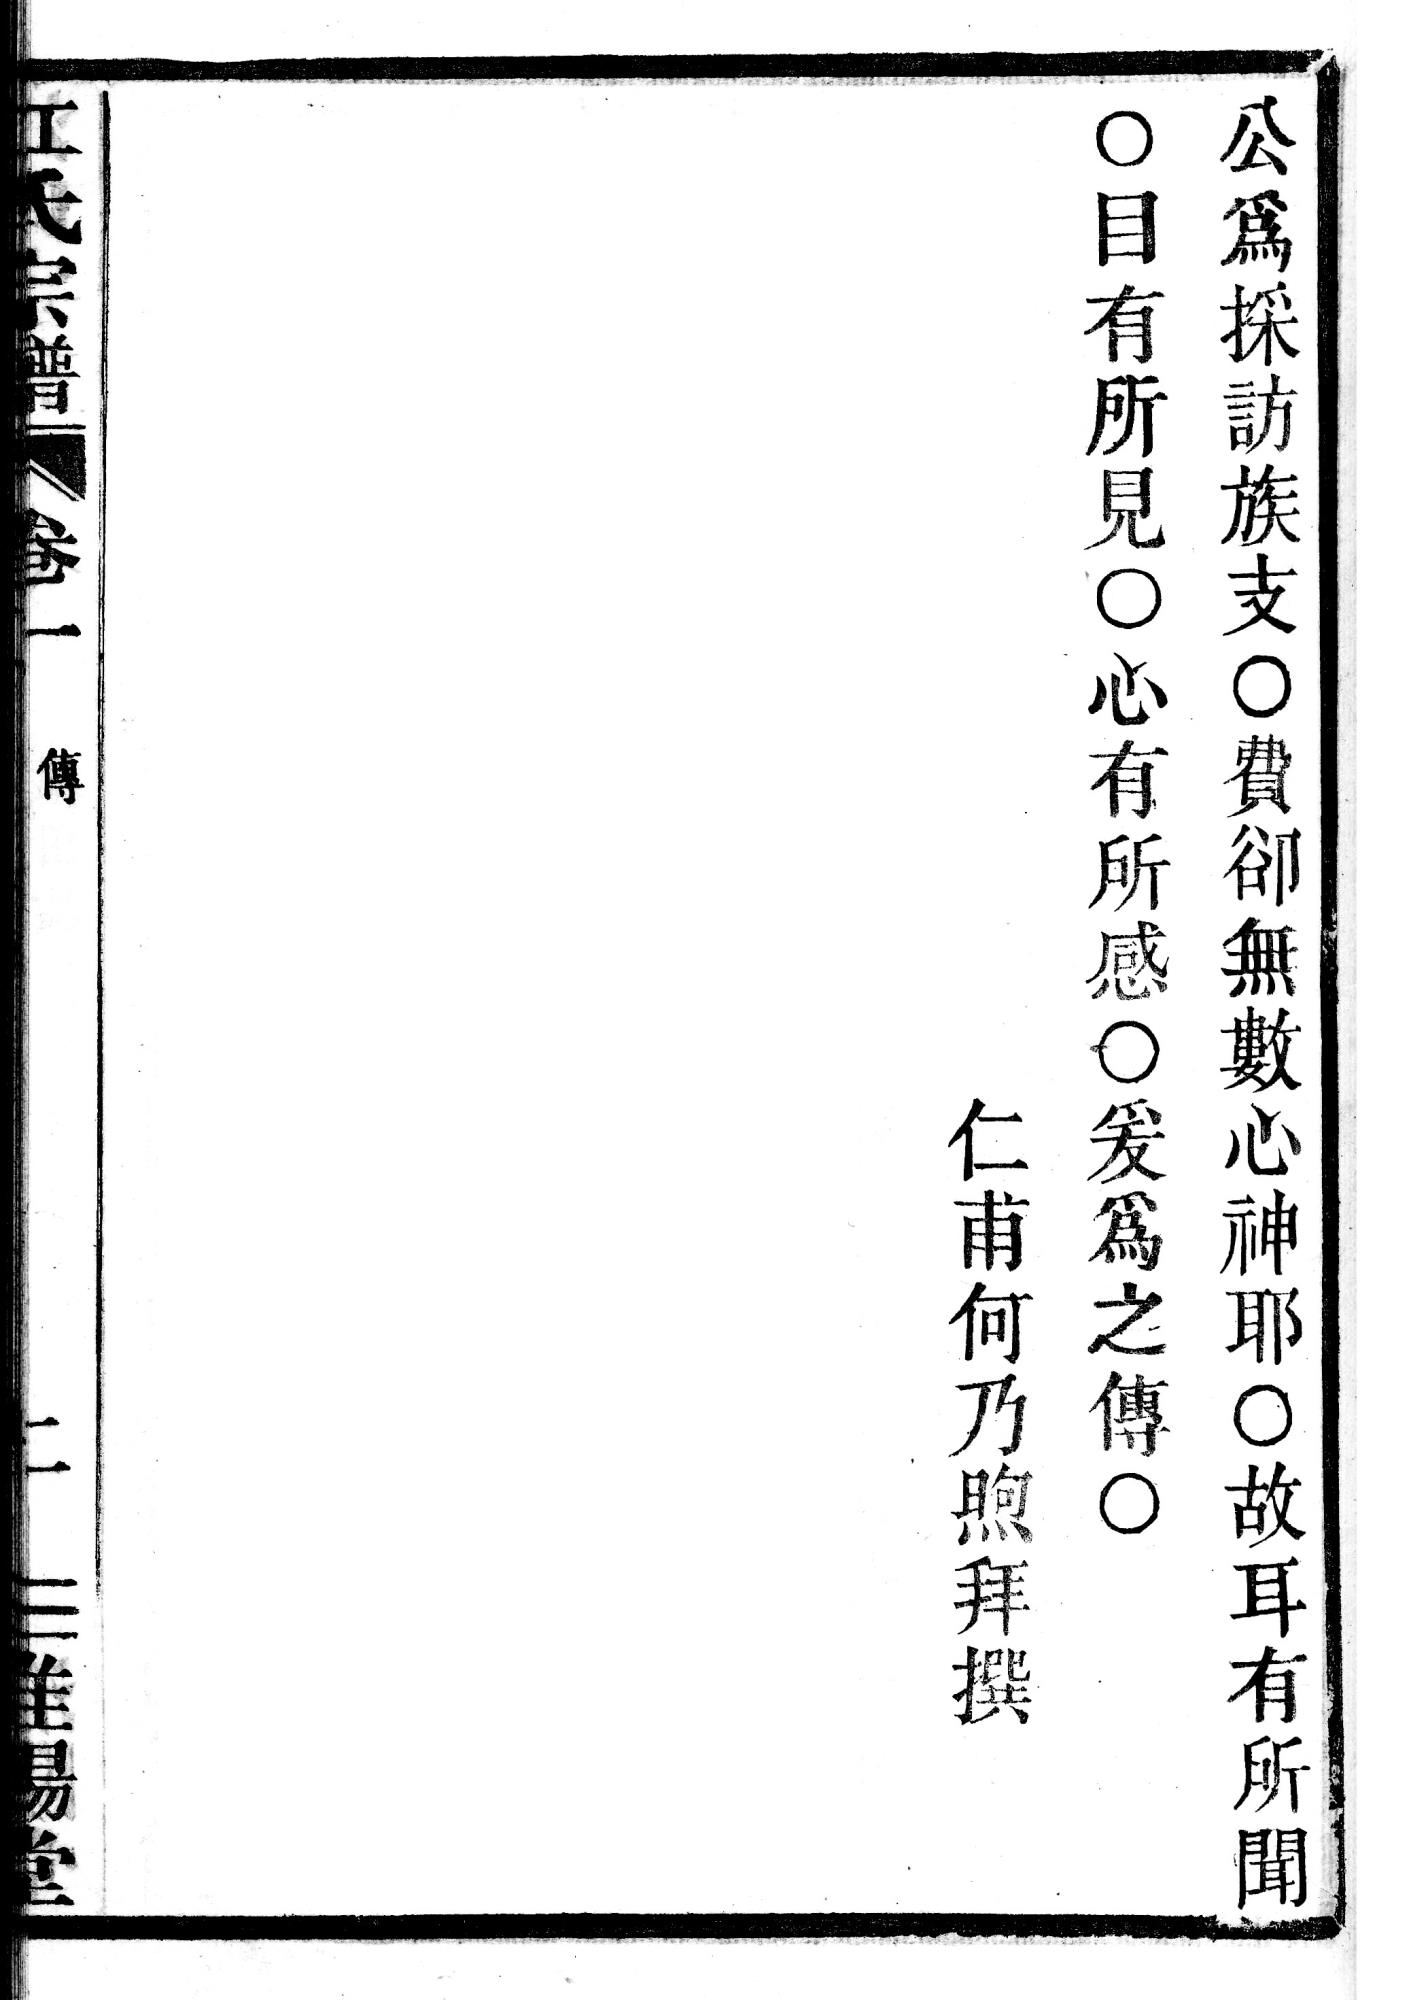 公爲採訪族支○費卻無數心神耶○故耳有所聞
○目有所見○心有所感○爰爲之傳○
仁甫何乃煦拜撰
江氏宗譜
卷一
傳
二
淮陽堂